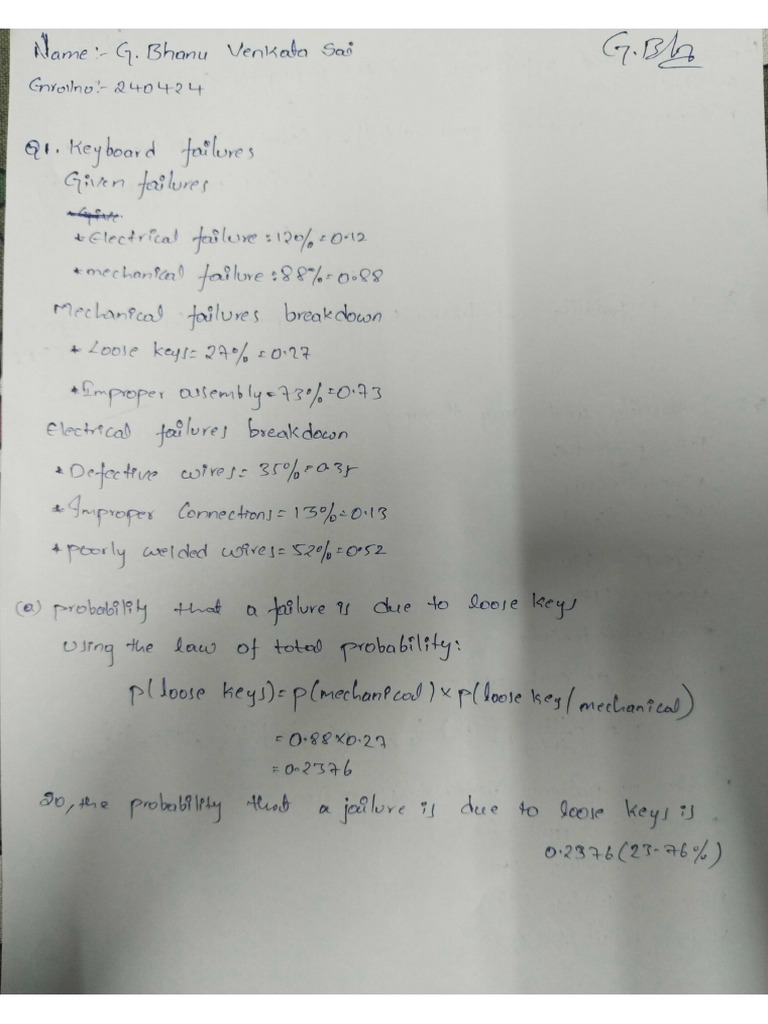 Name:- G. Bhanu Venkata Sai
G.Bh
Enrollno:- 240424
Q1. Keyboard failures
Given failures
Give
* Electrical failure: 12% = 0.12
* mechanical failure: 88% = 0.88
Mechanical failures breakdown
* Loose keys = 27% = 0.27
* Improper assembly = 73% = 0.73
Electrical failures breakdown
* Defective wires = 35% = 0.35
* Improper Connections = 13% = 0.13
* poorly welded wires = 52% = 0.52
(a) probability that a failure is due to loose keys
using the law of total probability:
p(loose keys) = p(mechanical) × p(loose key/mechanical)
= 0.88×0.27
= 0.2376
So, the probability that a failure is due to loose keys is
0.2376 (23-76%)